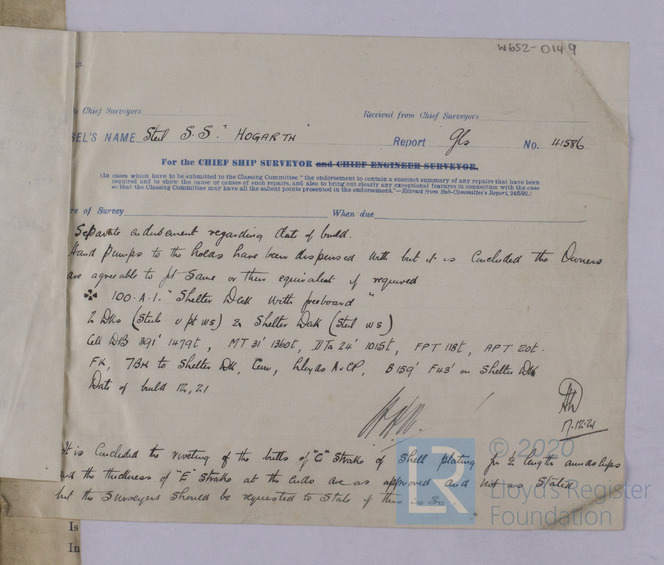 W652-0149
Chief Surveyors
Received from Chief Surveyors
SEL'S NAME Steel S.S. "HOGARTH Report Gls No. 41586
For the CHIEF SHIP SURVEYOR and CHIEF ENGINEER SURVEYOR.
(In cases which have to be submitted to the Classing Committee "the endorsement to contain a succinct summary of any repairs that have been
required and to show the cause or causes of such repairs, and also to bring out clearly any exceptional features in connection with the case
so that the Classing Committee may have all the salient points presented in the endorsement."—Extract from Sub-Committee's Report, 24/5/92.)
re of Survey When due
Separate endorsement regarding date of build.
Hand pumps to the holds have been dispensed with but it is concluded the Owners
are agreeable to fit same or their equivalent if required
✠ 100.A.1. "Shelter Deck with freeboard"
2 Dks (Steel & pt ws) & Shelter Deck (Steel ws)
Cell DB 391' 1479t, MT 31' 1360t, DTa 24' 1015t, FPT 118t, APT 20t.
FK, 7BH to Shelter Dk, Cem, Lloyds A.CP, B 159' F43' on Shelter Dk
Date of build 12, 21
17.12.21
It is concluded the riveting of the butts of "C" Strake of Shell plating for ½ length amidships
and the thickness of "E" Strake at the ends are as approved and not as stated
but the Surveyors should be requested to state if this is so
© 2020
LR
Lloyd's Register
Foundation
Is
In